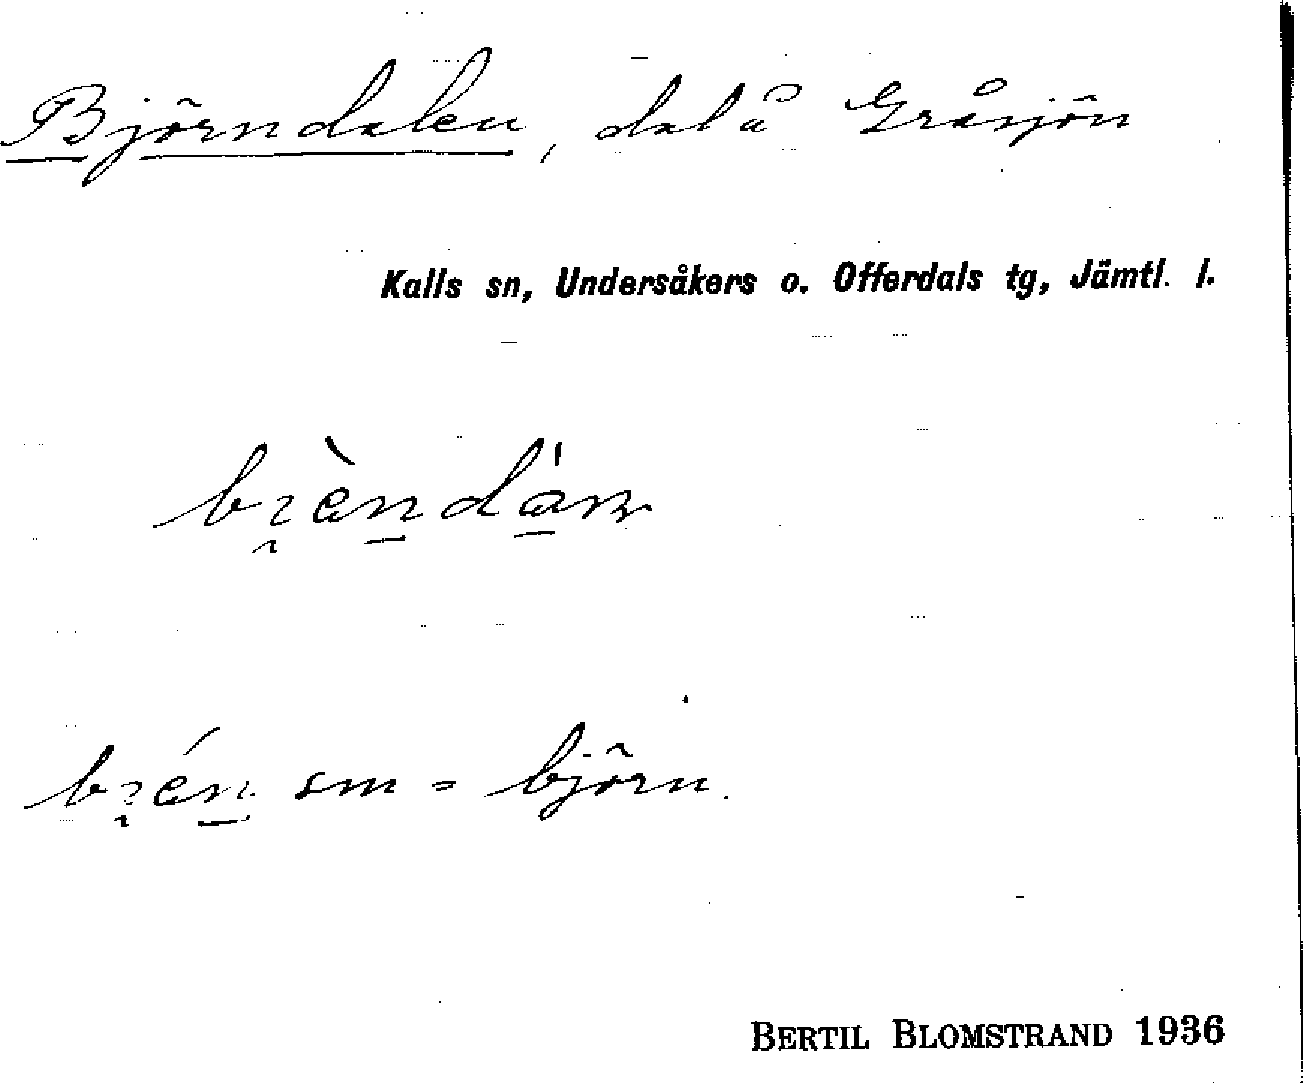 Björndalen, dal å Gråsjön
Kalls sn, Undersåkers o. Offerdals tg, Jämtl. l.
sm = björn.
BERTIL BLOMSTRAND 1936